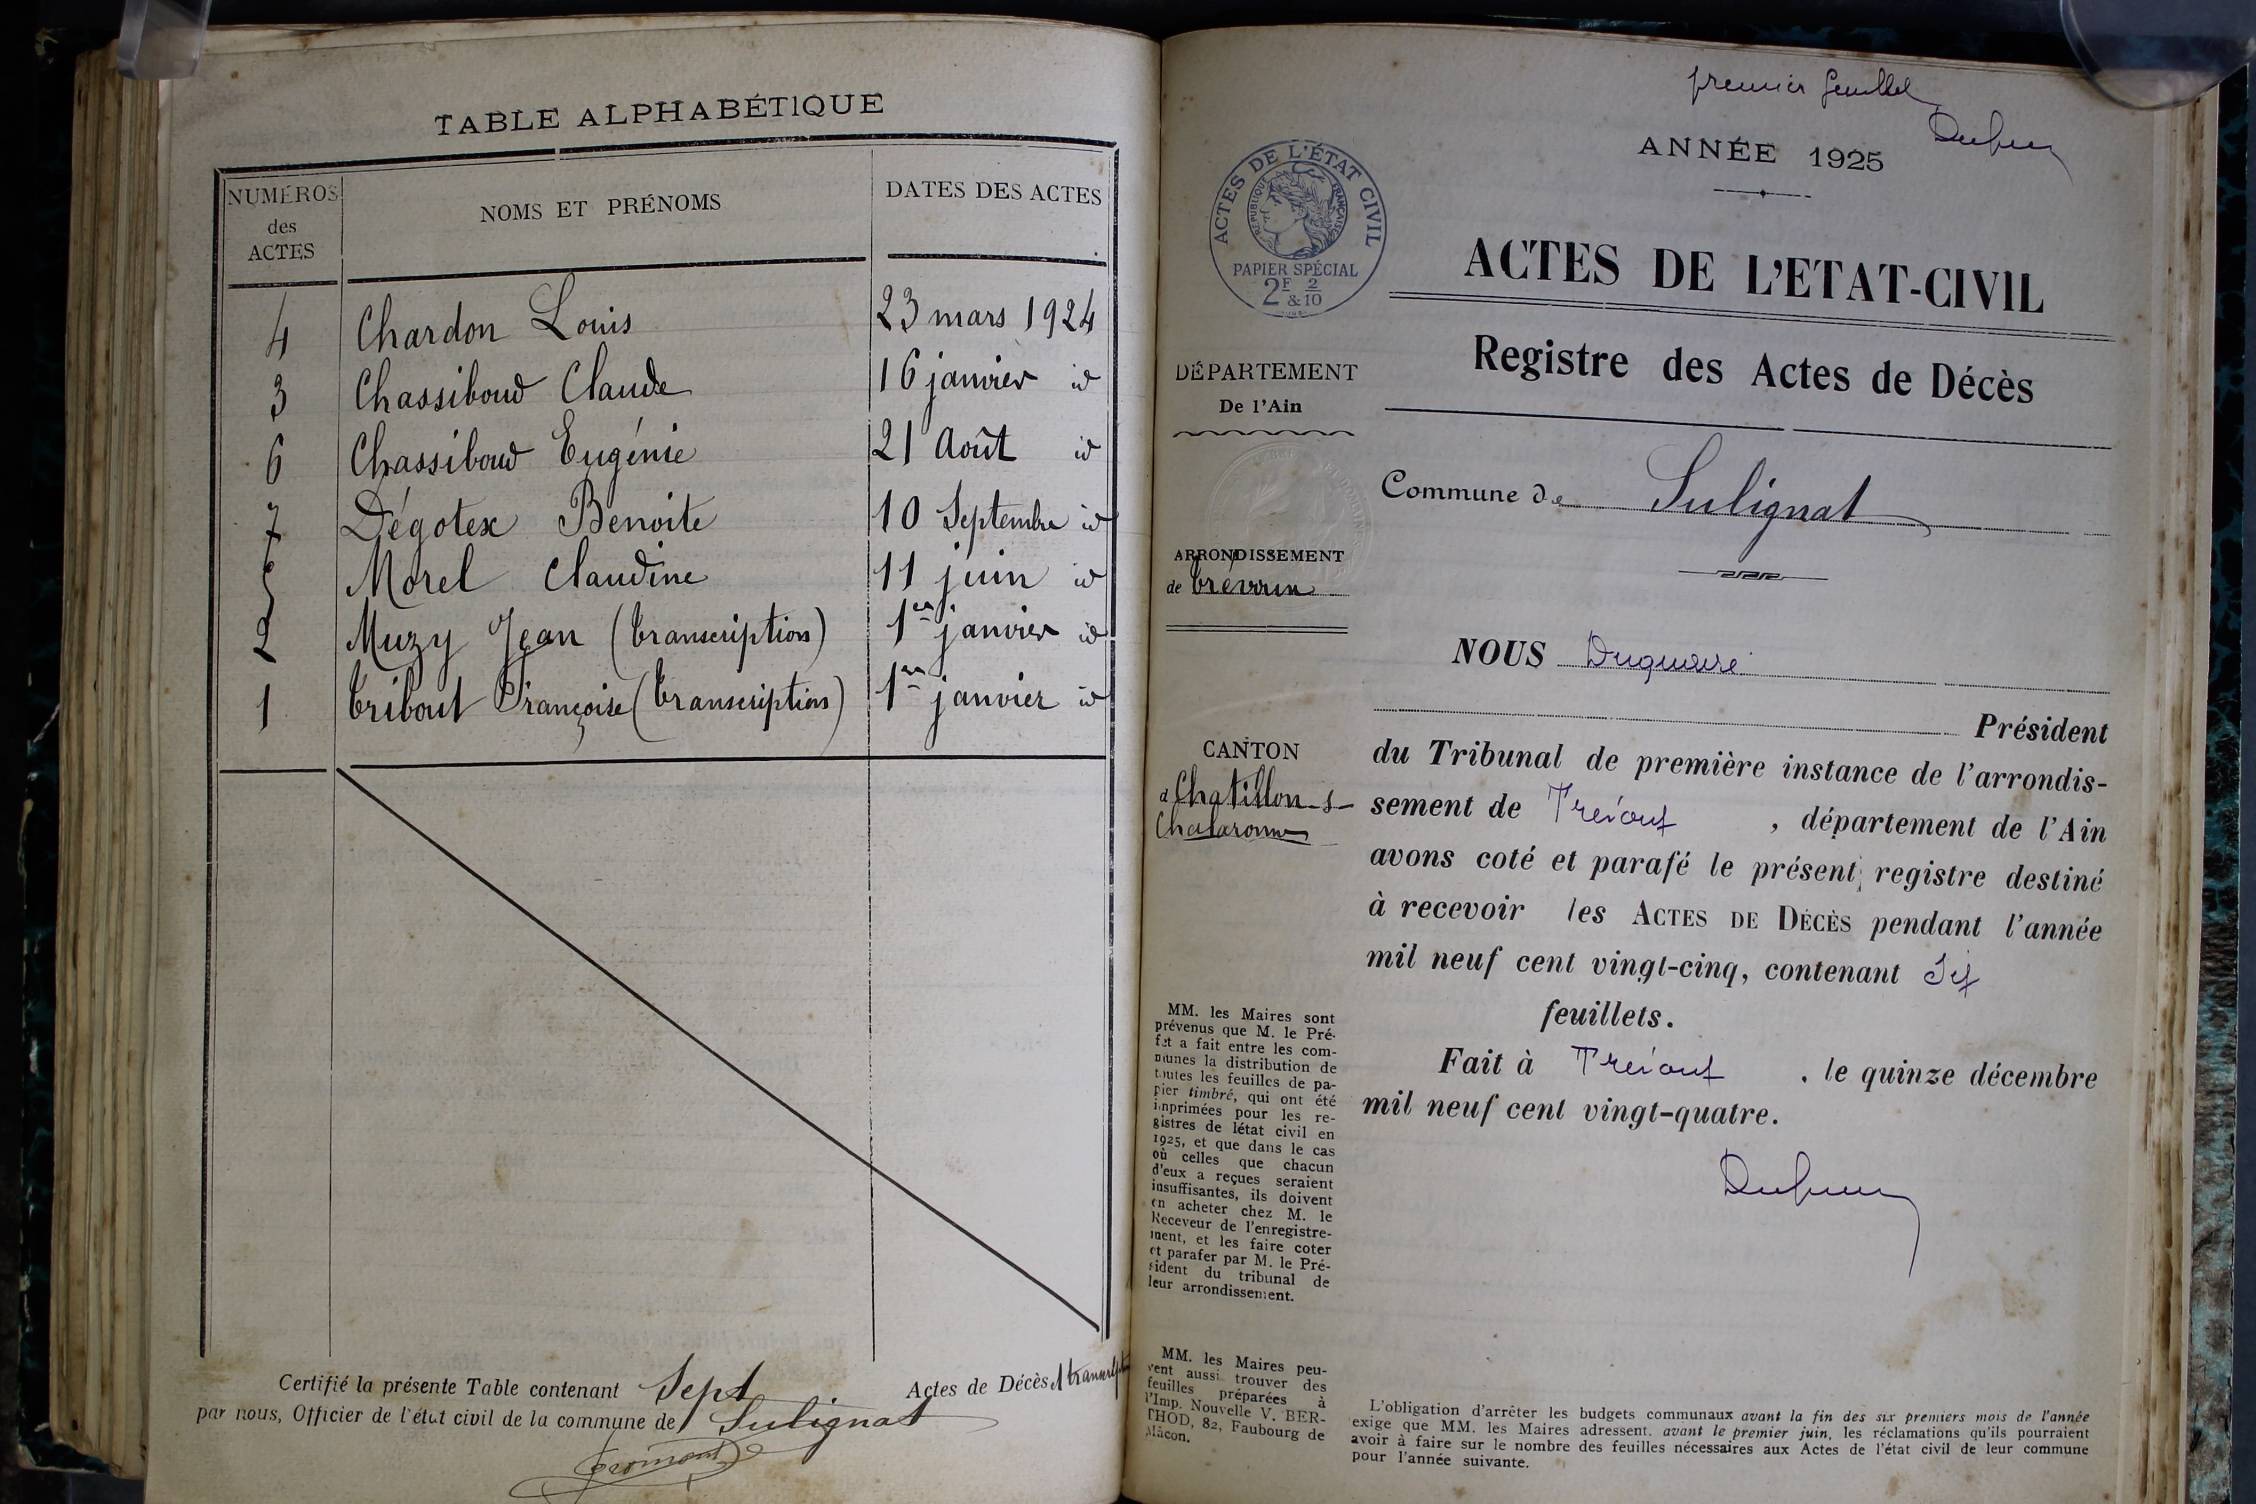 TABLE ALPHABÉTIQUE
NUMÉROS des ACTES
NOMS ET PRÉNOMS
DATES DES ACTES
4 Chardon Louis 23 mars 1924
3 Chassiboud Claude 16 janvier id
6 Chassiboud Eugénie 21 Août id
7 Dégotex Benoite 10 Septembre id
Morel Claudine 11 juin id
2 Muzy Jean (transcription) 1er janvier id
1 Tribout Françoise (transcription) 1er janvier id
Certifié la présente Table contenant Sept Actes de Décès
par nous, Officier de l'état civil de la commune de Sulignat
premier feuillet
ANNÉE 1925
ACTES DE L'ÉTAT CIVIL
RÉPUBLIQUE FRANÇAISE
PAPIER SPÉCIAL
2F & 2/10
ACTES DE L'ETAT-CIVIL
Registre des Actes de Décès
DÉPARTEMENT
De l'Ain
Commune de Sulignat
ARRONDISSEMENT
de Trévoux
NOUS
Président
CANTON
d Chatillon-s-
Chalaronne
du Tribunal de première instance de l'arrondis-
sement de Trévoux, département de l'Ain
avons coté et parafé le présent registre destiné
à recevoir les ACTES DE DÉCÈS pendant l'année
mil neuf cent vingt-cinq, contenant Six
feuillets.
Fait à Trévoux, le quinze décembre
mil neuf cent vingt-quatre.
MM. les Maires sont
prévenus que M. le Pré-
fet a fait entre les com-
munes la distribution de
toutes les feuilles de pa-
pier timbré, qui ont été
imprimées pour les re-
gistres de létat civil en
1925, et que dans le cas
où celles que chacun
d'eux a reçues seraient
insuffisantes, ils doivent
en acheter chez M. le
Receveur de l'enregistre-
ment, et les faire coter
et parafer par M. le Pré-
sident du tribunal de
leur arrondissement.
MM. les Maires peu-
vent aussi trouver des
feuilles préparées à
l'Imp. Nouvelle V. BER-
THOD, 82, Faubourg de
Mâcon.
L'obligation d'arrêter les budgets communaux avant la fin des six premiers mois de l'année
exige que MM. les Maires adressent, avant le premier juin, les réclamations qu'ils pourraient
avoir à faire sur le nombre des feuilles nécessaires aux Actes de l'état civil de leur commune
pour l'année suivante.